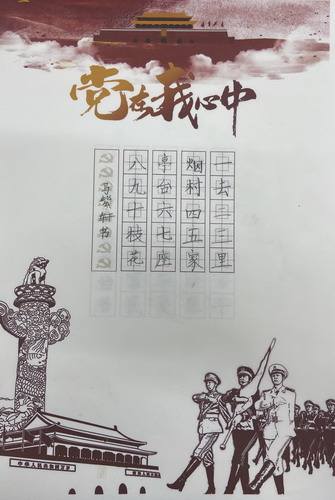 党在我心中
一去二三里
烟村四五家
亭台六七座
八九十枝花
马紫轩书
中华人民共和国万岁